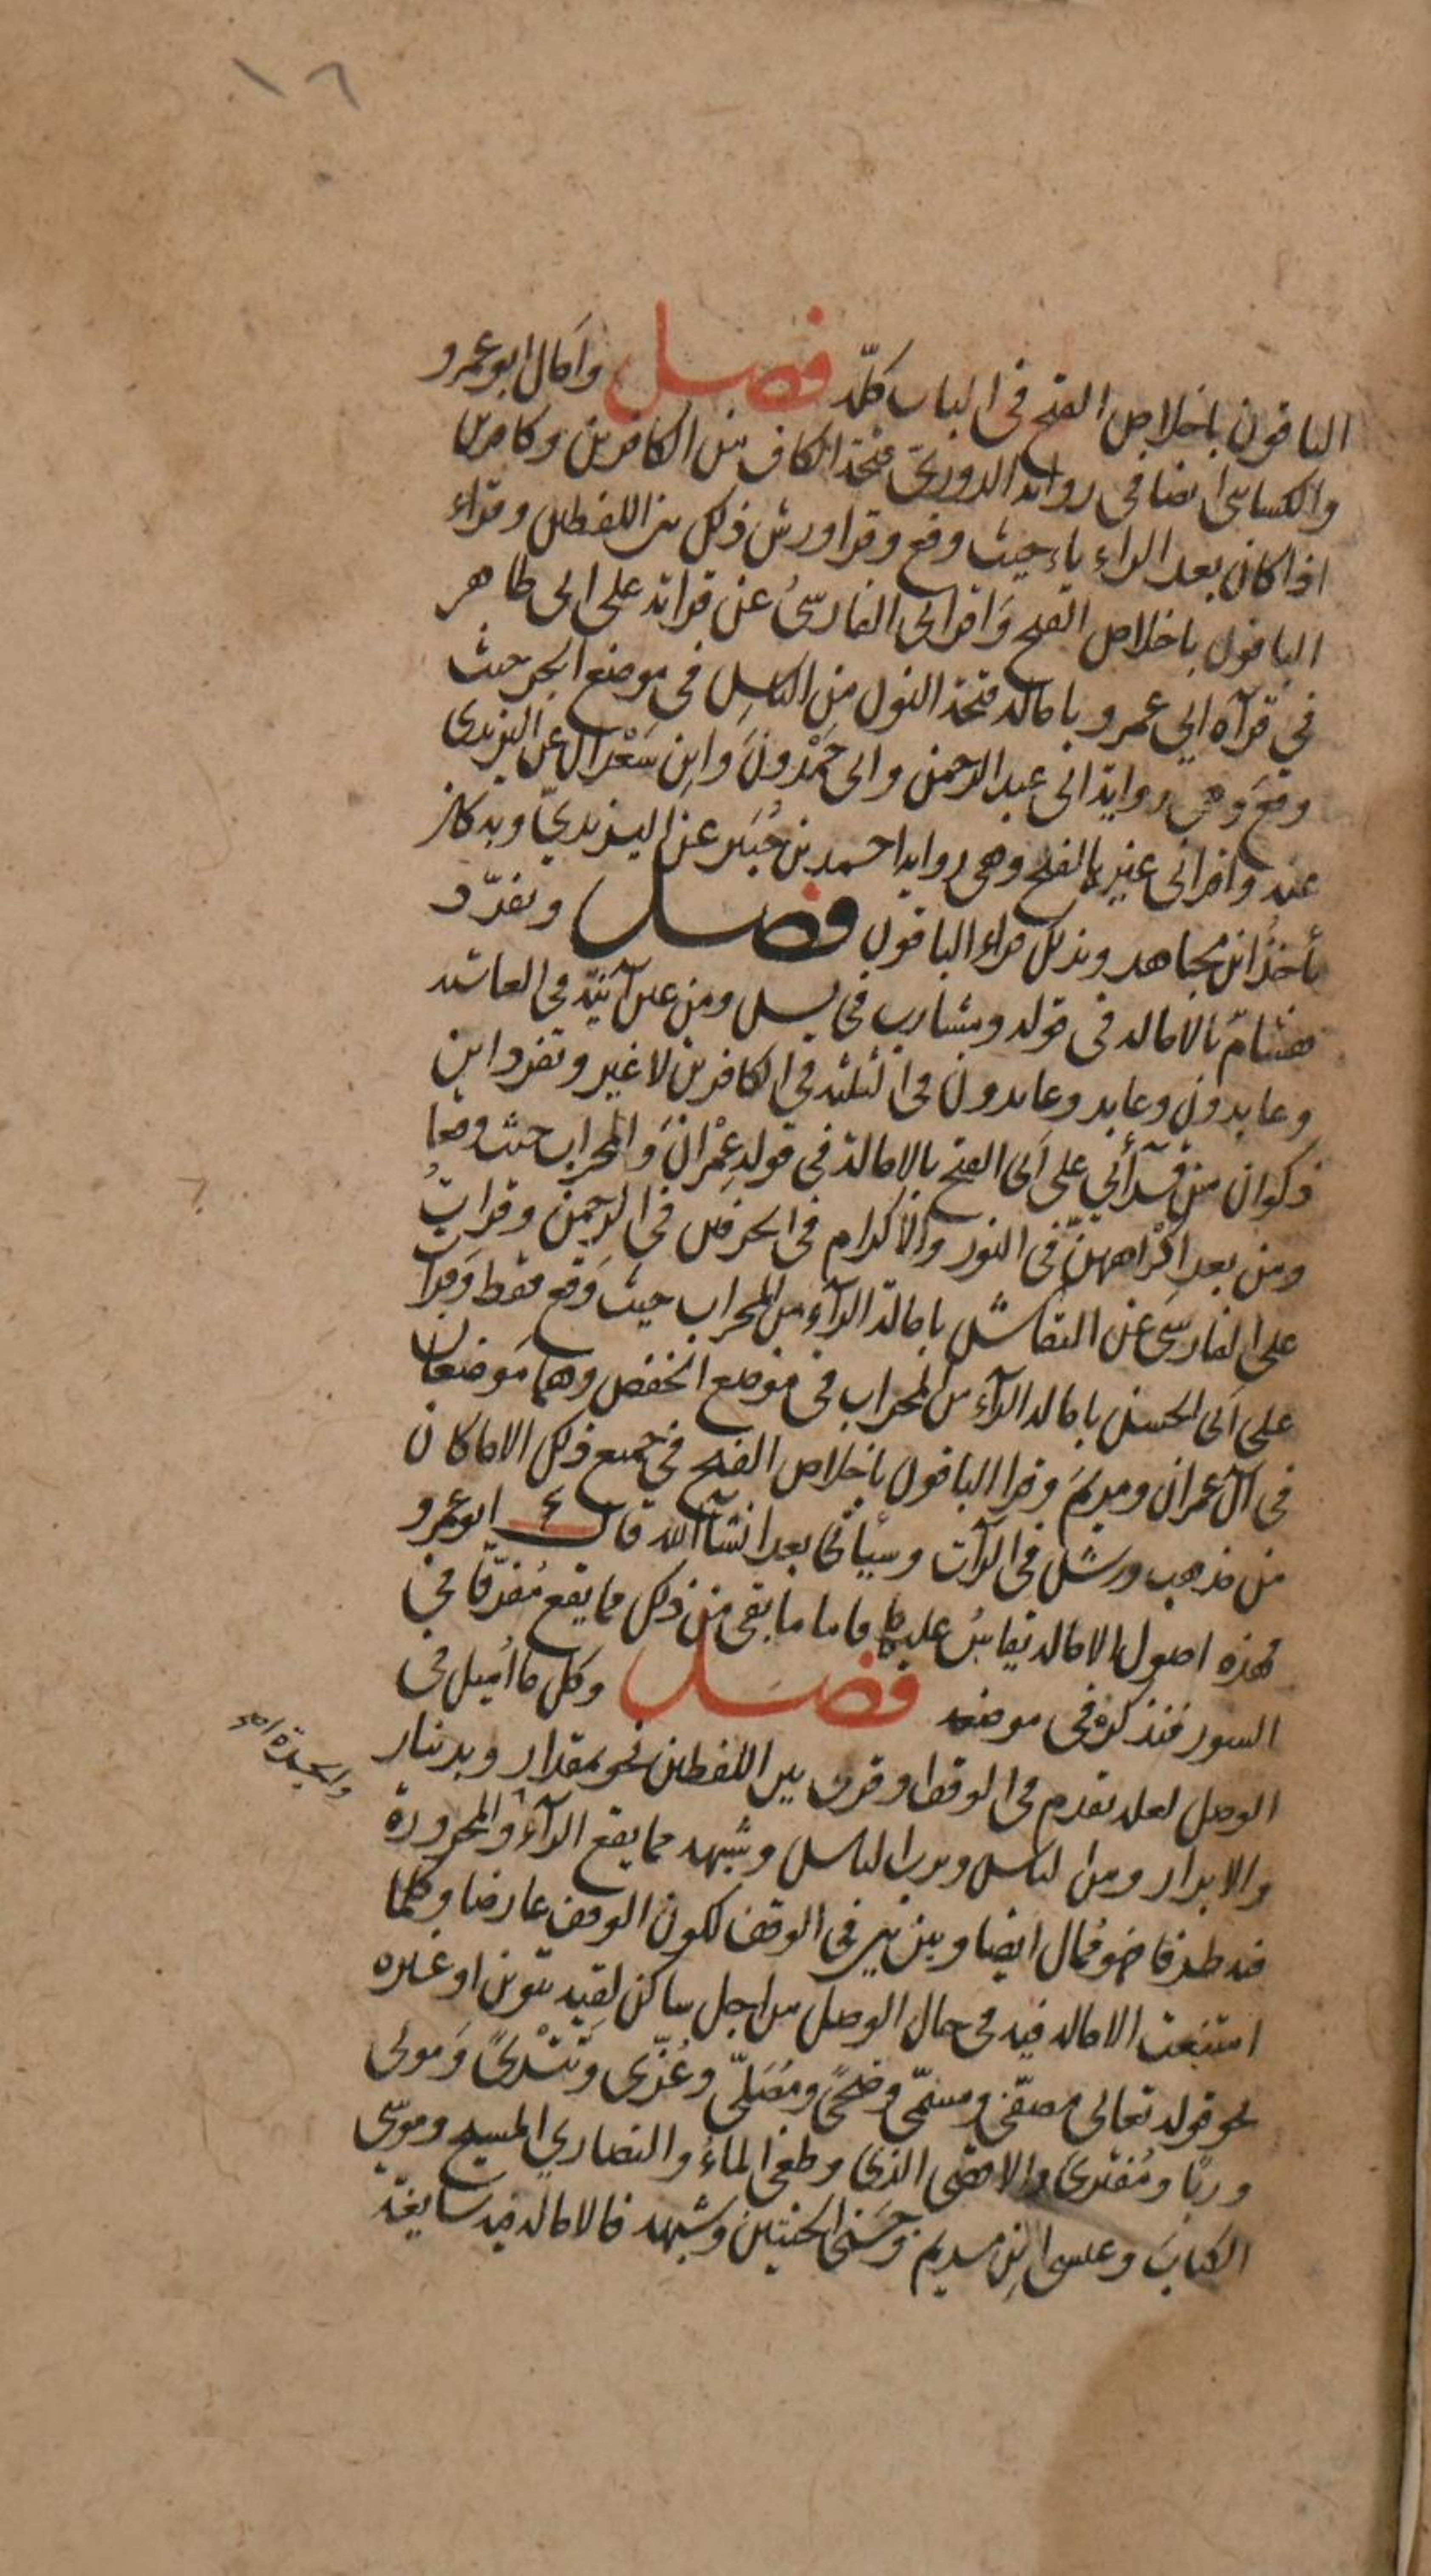 ١٦
الباقون باخلاص الفتح فى الباب كلّه فصل وأمال ابو عمرو
والكسائى ايضا فى رواية الدورىّ فتحة الكاف من الكافرين وكافرين
اذا كان بعد الراء ياء حيث وقع وقرا ورش ذلك بين اللفظين وقراء
الباقون باخلاص الفتح وَاقرانى الفارسىُّ عن قراته على ابى طاهر
في قرآة ابي عمرو بامالة فتحة النون من الناسِ فى موضع الجر حيث
وقع وهى رواية ابى عبد الرحمن وابى حَمْدُونَ وابنِ سَعْدَان عن اليزيدى
عنه واقرانى غيره بالفتح وهى رواية احمد بن جُبَير عن اليزيديّ وبه كان
يأخذُ ابن مجاهد وبذلك قراء الباقون فصل وتفرّد
هشامٌ بالامالة فى قوله ومشارب فى يس ومن عين آنيَةٍ فى الغاشية
وعابدون وعابد وعابدون فى الثلثة فى الكافرين لا غير وتفرد ابن
ذكوان من قرآئي على أبى الفتح بالامالة فى قوله عِمْرَانَ والمحراب حيث وقعا
ومن بعد إكْرَاههِنَّ فى النور والاكرام فى الحرفين فى الرحمن وقراتُ
على الفارسى عن النقاش بامالة الرآءِ من المحراب حيث وَقع فقط وقرات
على أبى الحسن بامالة الرآء من المحراب فى موضع الخفض وهما موضعان
فى آل عمران ومريمَ وقرا الباقون باخلاص الفتح في جميع ذلك الا ما كان
من مذهب ورش فى الرآت وسيأتى بعد انشآالله قال ابو عمرو
فهذه اصول الامالة يقاسُ عليها فاما ما بقى من ذلك مما يقع مُفرّقًا في
السور فنذكره فى موضعه فصل وكل ما أميل فى
الوصل لعلة تقدم فى الوقف وقرى بين اللفظين نحو بمقدار وبدينار
والابرار ومن الناس وبرب الناس وشبهه مما يقع الرآءُ والمجرورة
فيه طرفا فهو ممال ايضا وبين بين فى الوقف لكون الوقف عارضا وكلما
امتنعت الامالة فيه فى حال الوصل من اجل ساكن لقيه تنوين او غيره
نحو قوله تعالى مصفّى ومسمّى وضحًى ومُصَلّى وغُزّى وتَتْرَىً ومَولى
وربًا ومُفترى والاقصى الذى وطغى الماءُ والنصاري المسيح وموسى
الكتابَ وعيسى ابنِ مريم وَجَنى الجنتين وشبهه فالامالة فيه سايغة